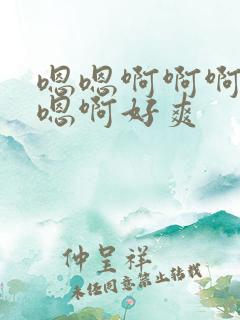 嗯嗯啊啊啊
嗯啊好爽
仲呈祥
未经同意禁止转载